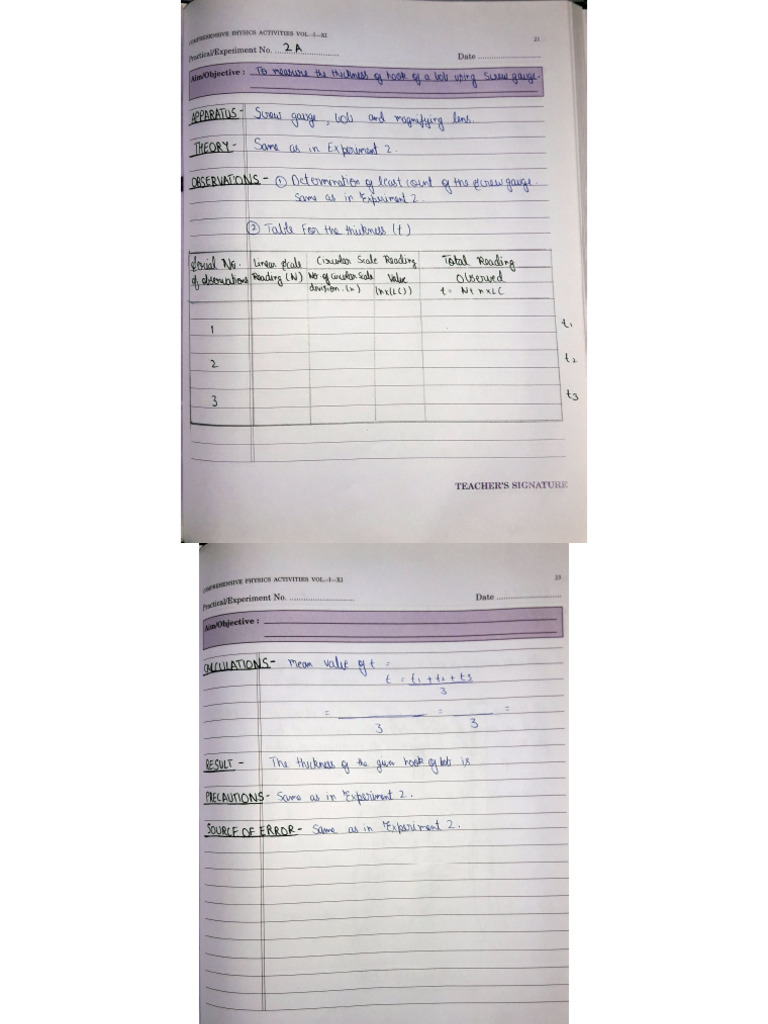 COMPREHENSIVE PHYSICS ACTIVITIES VOL.-I-XI
21
Practical/Experiment No. ... 2A ...................
Date ......................
Aim/Objective : To measure the thickness of hook of a bob using Screw gauge.
APPARATUS - Screw gauge, bob and magnifying lens.
THEORY - Same as in Experiment 2.
OBSERVATIONS - ① Determination of least count of the screw gauge.
Same as in Experiment 2.
② Table For the thickness (t)
Serial No. of observations
Linear Scale Reading (N)
Circular Scale Reading
No. of Circular Scale division. (n)
Value (n×(LC))
Total Reading Observed t = N+ n×LC
1 t₁
2 t₂
3 t₃
TEACHER'S SIGNATURE
COMPREHENSIVE PHYSICS ACTIVITIES VOL.-I-XI
23
Practical/Experiment No. ..............................
Date ..............................
Aim/Objective :
CALCULATIONS - Mean value of t =
t = t₁ + t₂ + t₃
3
= ________ = ____ =
3 3
RESULT - The thickness of the given hook of bob is
PRECAUTIONS - Same as in Experiment 2.
SOURCE OF ERROR - Same as in Experiment 2.